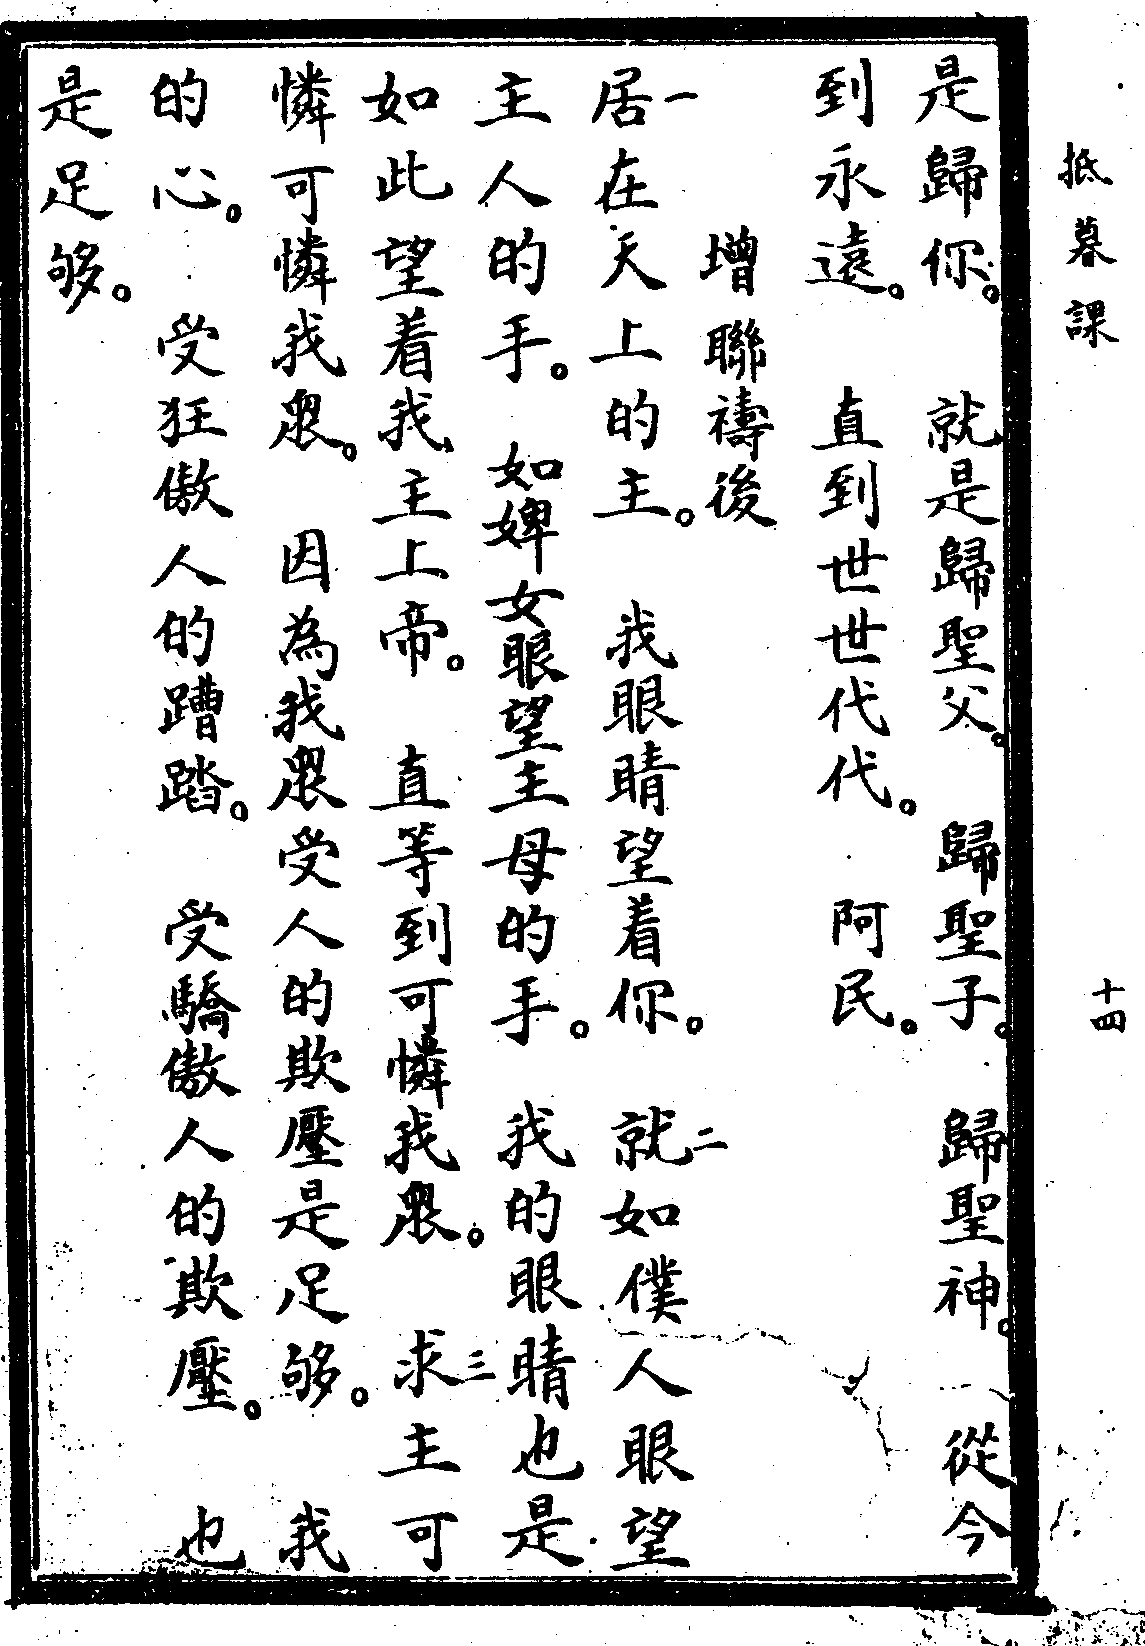 抵暮課
十四
是歸你。就是歸聖父。歸聖子。歸聖神。從今
到永遠。直到世世代代。阿民。
增聯禱後
一居在天上的主。我眼睛望着你。二就如僕人眼望
主人的手。如婢女眼望主母的手。我的眼睛也是
如此望着我主上帝。直等到可憐我眾。三求主可
憐可憐我眾。因為我眾受人的欺壓是足够。我
的心。受狂傲人的蹧踏。受驕傲人的欺壓。也
是足够。